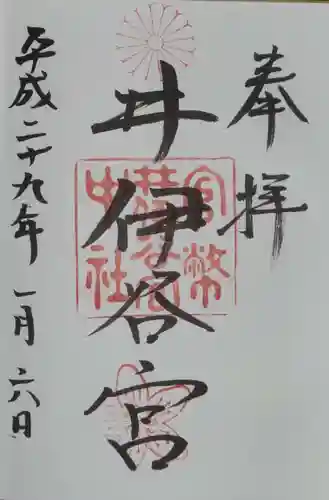 奉拝
井伊谷宮
官幣中社井伊谷宮
平成二十九年一月六日